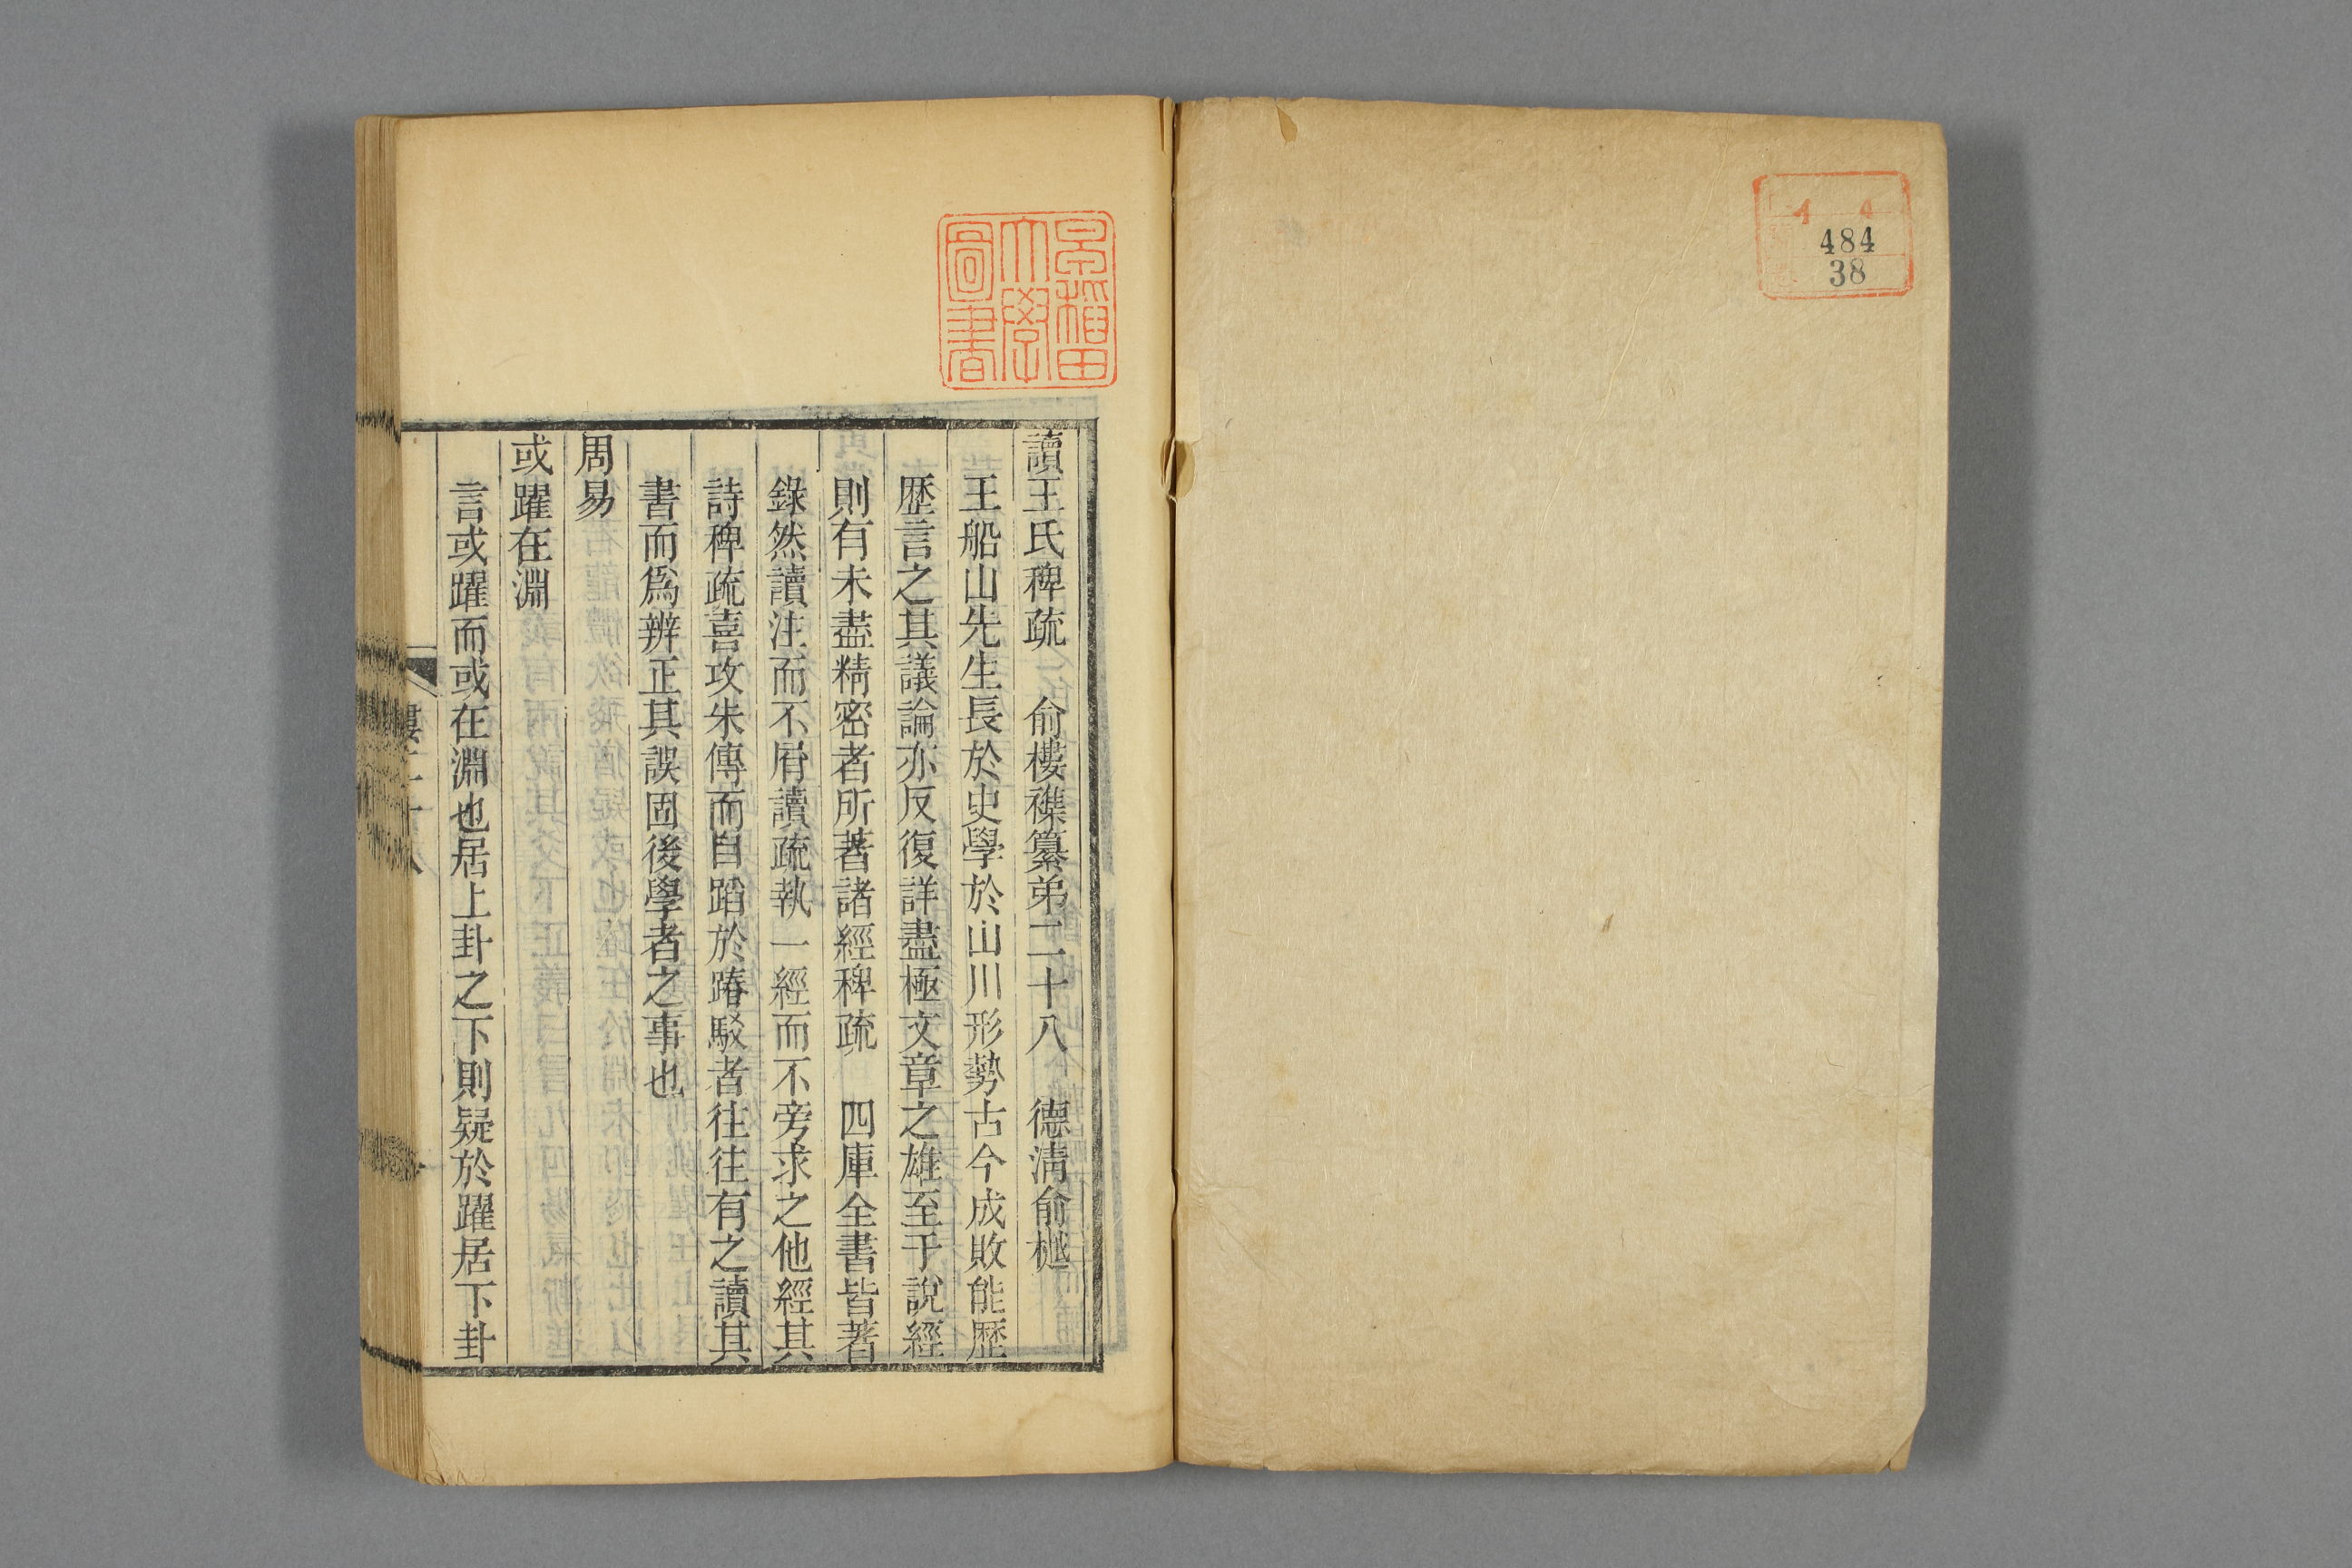 484
38
早稲田
大學
圖書
讀王氏稗疏　俞樓襍纂弟二十八　德清俞樾
王船山先生長於史學於山川形勢古今成敗能歷
歷言之其議論亦反復詳盡極文章之雄至于說經
則有未盡精密者所著諸經稗疏　四庫全書皆著
錄然讀注而不屑讀疏執一經而不旁求之他經其
詩稗疏喜攻朱傳而自蹈於踳駁者往往有之讀其
書而爲辨正其誤固後學者之事也
周易
或躍在淵
言或躍而或在淵也居上卦之下則疑於躍居下卦